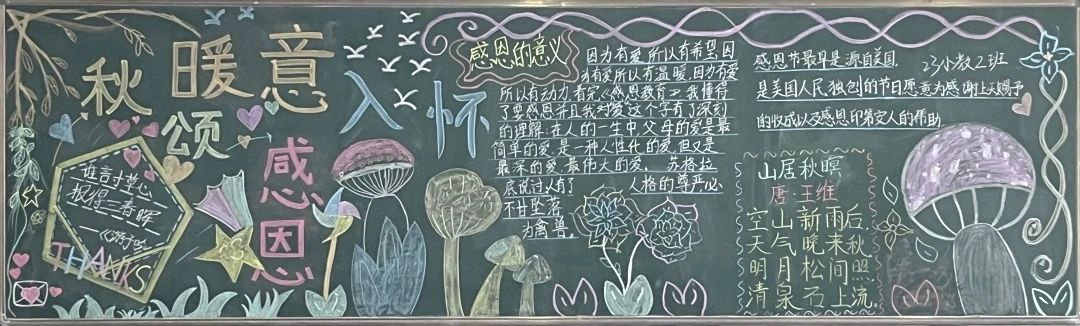 秋颂
暖意入怀
感恩
谁言寸草心
报得三春晖
《游子吟》
THANKS
感恩的意义
因为有爱,所以有希望,因
为有爱所以有温暖,因为有爱
所以有动力,看完《感恩教育》,我懂得
了要感恩并且我对“爱”这个字有了深刻
的理解.在人的一生中,父母的爱是最
简单的爱,是一种人性化的爱,但又是
最深的爱,最伟大的爱。 苏格拉
底说过:人有了 人格的尊严,必
不甘坠落
为禽兽。
感恩节最早是源自美国, 23小教2班
是美国人民独创的节日,愿意为感谢上天赐予
的收成以及感恩印第安人的帮助
山居秋暝
唐·王维
空山新雨后,
天气晚来秋
明月松间照
清泉石上流。